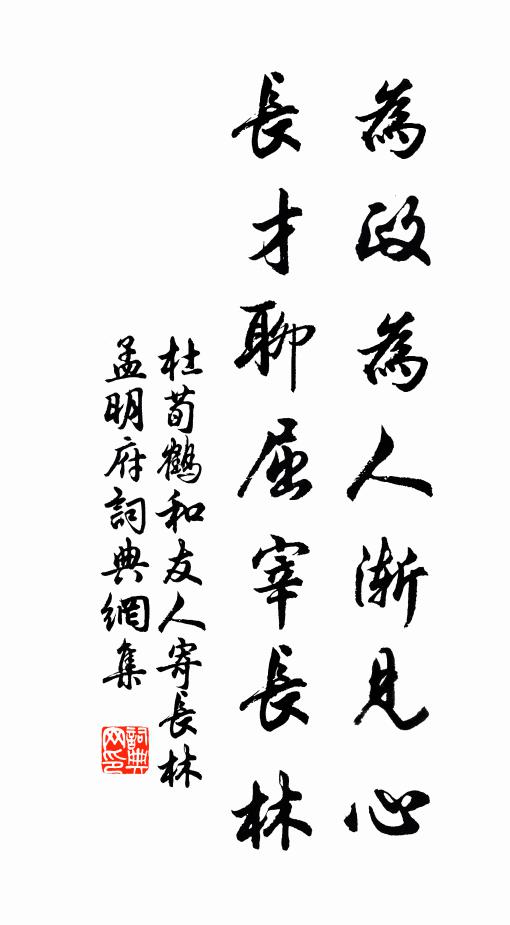 為政為人漸見心
長才聊屈宰長林
杜荀鶴和友人寄長林
孟明府詞典網集
詞典網印